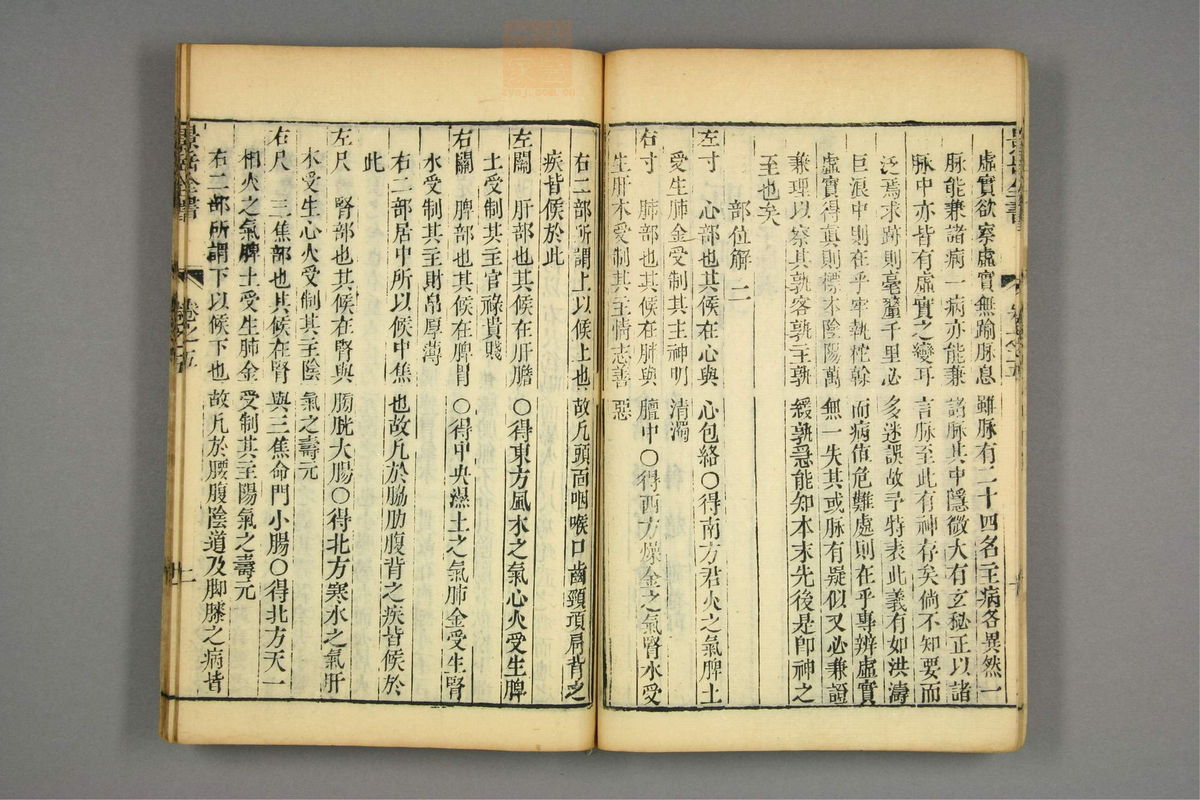 景岳全書
卷之五
虛實欲察虛實無踰脉息雖脉有二十四名主病各異然一
脉能兼諸病一病亦能兼諸脉其中隱微大有玄秘正以諸
脉中亦皆有虛實之變耳言脉至此有神存矣倘不知要而
泛焉求跡則毫釐千里必多迷誤故予特表此義有如洪濤
巨浪中則在乎牢執柁幹而病值危難處則在乎專辨虛實
虛實得真則標本陰陽萬無一失其或脉有疑似又必兼證
兼理以察其孰客孰主孰緩孰急能知本末先後是卽神之
至也矣
部位解 二
左寸 心部也其候在心與心包絡○得南方君火之氣脾土
愛生肺金受制其主神明清濁
右寸 肺部也其候在肺與膻中○得西方燥金之氣腎水受
生肝木受制其主情志善惡
右二部所謂上以候上也故凢頭面咽喉口齒頸項肩背之
疾皆候於此
左關 肝部也其候在肝膽○得東方風木之氣心火受生脾
土受制其主官祿貴賤
右關 脾部也其候在脾胃○得中央濕土之氣肺金受生腎
水受制其主財帛厚薄
右二部居中所以候中焦也故凢於脇肋腹背之疾皆候於
此
左尺 腎部也其候在腎與膀胱大腸○得北方寒水之氣肝
木受生心火受制其主陰氣之壽元
右尺 三焦部也其候在腎與三焦命門小腸○得北方天一
相火之氣脾土受生肺金受制其主陽氣之壽元
右二部所謂下以候下也故凢於腰腹陰道及脚膝之病皆
景岳全書
卷之五
二